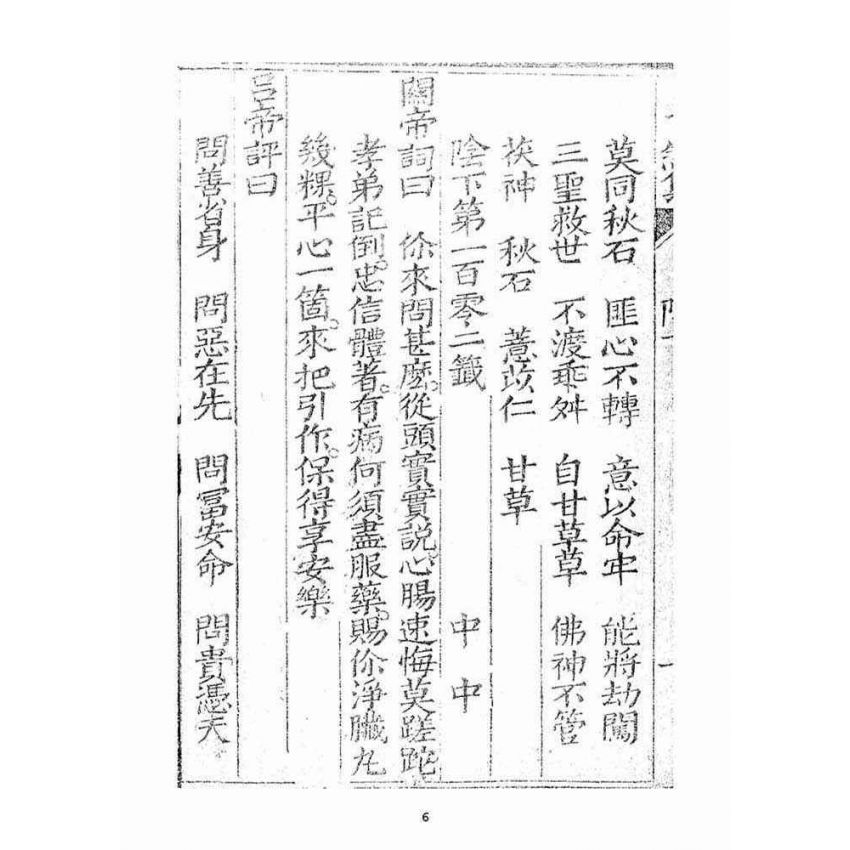 莫同秋石　匪心不轉　意以命牢　能將劫闖
三聖救世　不渡乖舛　自甘草草　佛神不管
茯神　秋石　薏苡仁　甘草
陰下第一百零二籤　中中
關帝詞曰　你來問甚麼。從頭實實說。心腸速悔莫蹉跎。
孝弟記倒。忠信體著。有病何須盡服藥。賜你淨臟丸
幾粿。平心一箇。來把引作。保得享安樂
呂帝評曰
問善省身　問惡在先　問冨安命　問貴憑天
6